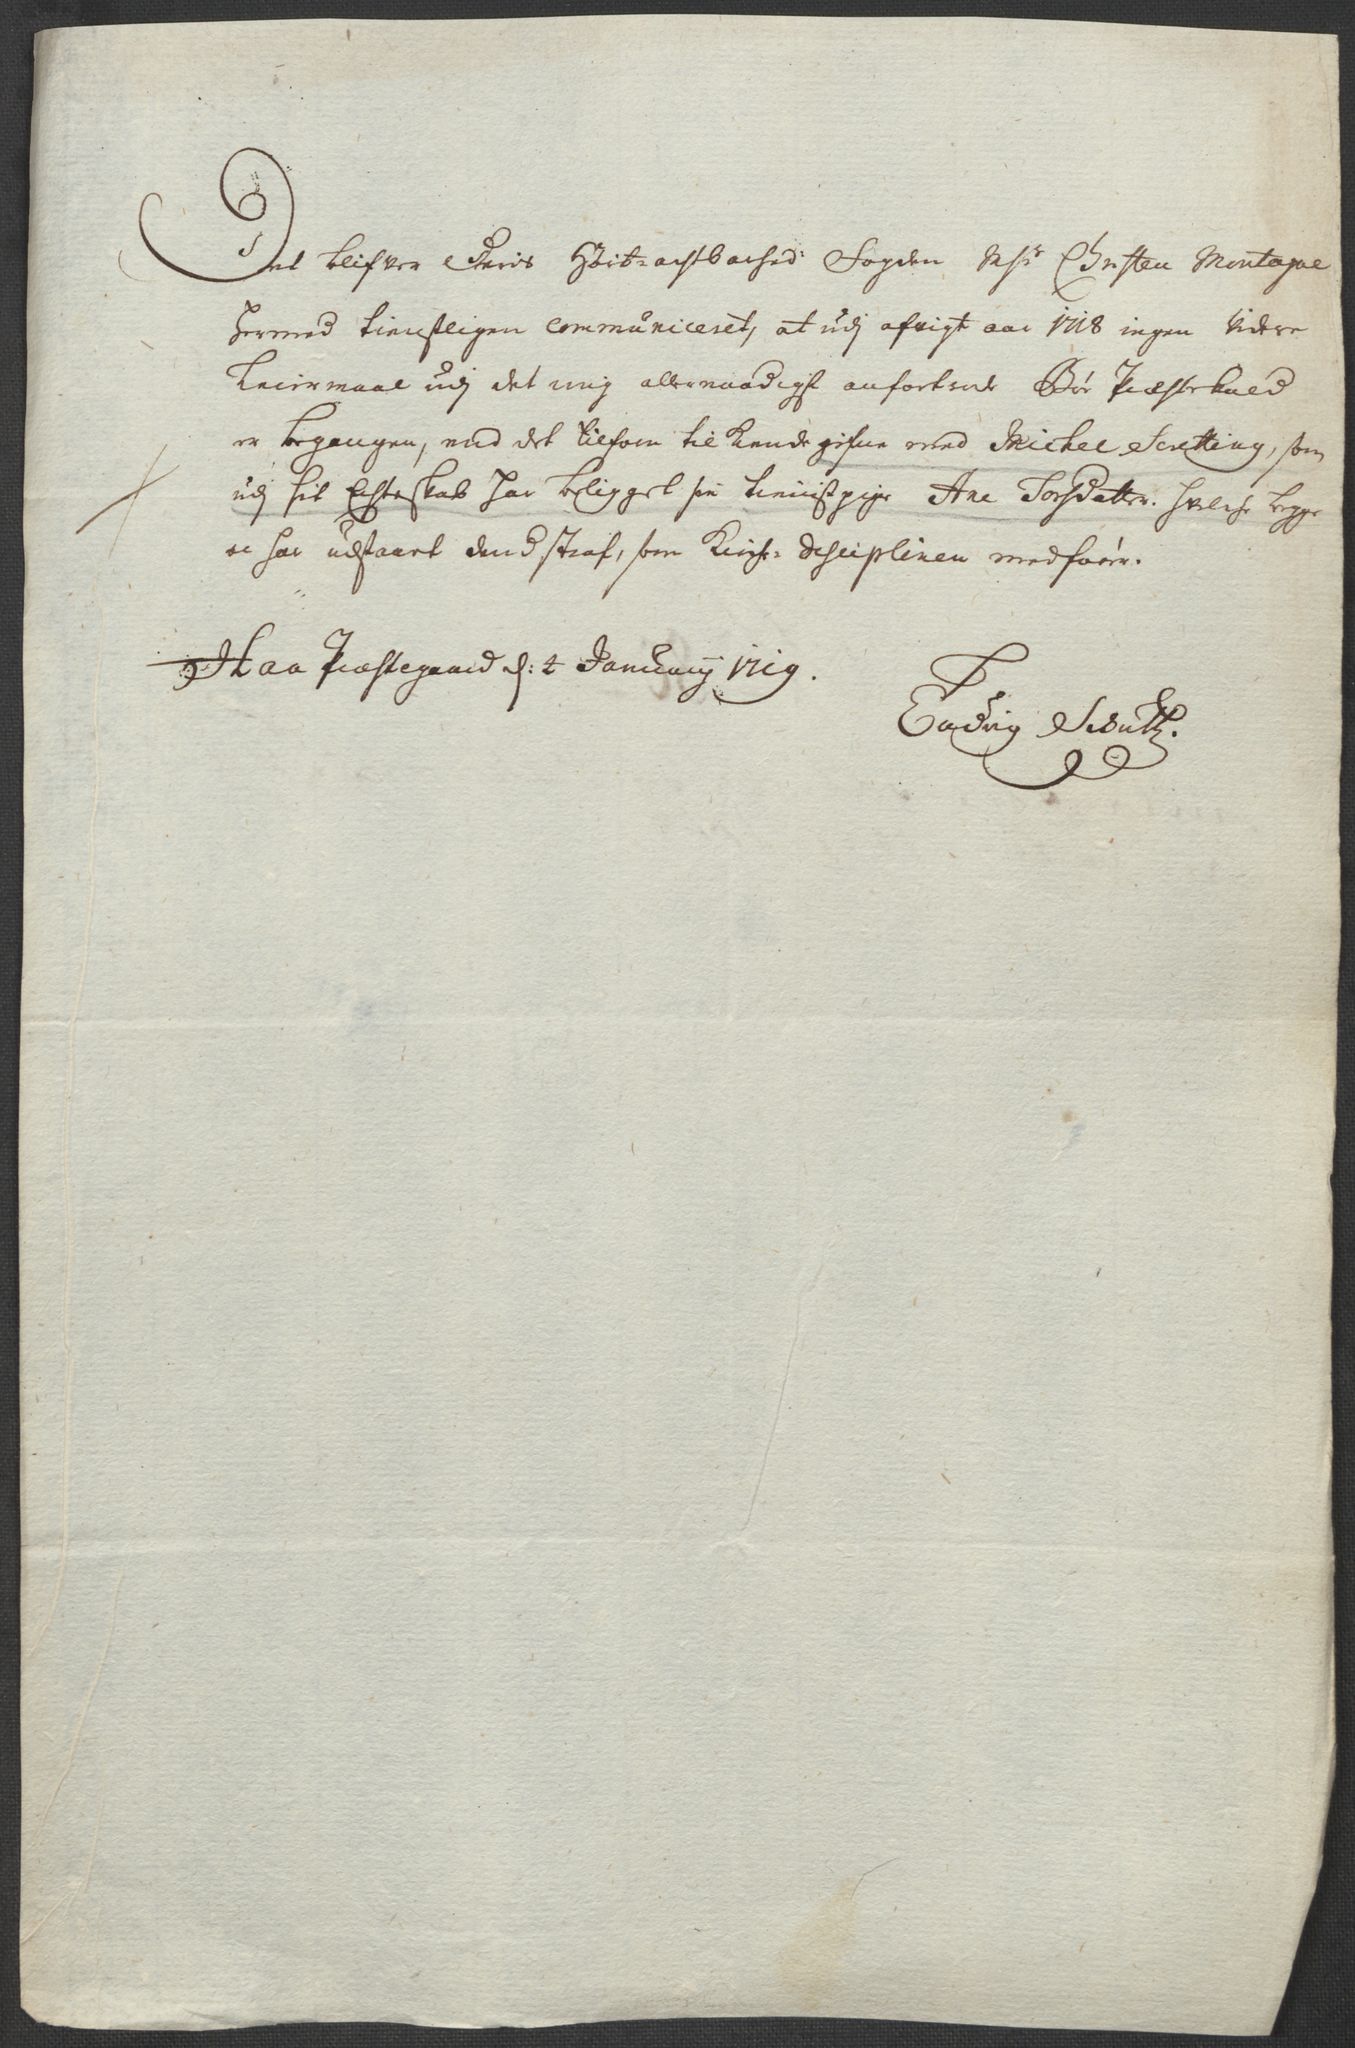 Det blifver Deris Höit-achtbahrhed Fogden Msr Christen Montagne
hermed tienstligen communiceret, at udj afvigt aar 1718 ingen videre
Leiermaal udj det mig allernaadigst anfortroede Bøe Præstekald
er begangen, end det tilforn til kiende gifne med Michel Scretting, som
udj sit Echteskab har beligget sin tieniste pige Ane Torsdatter. hvilche begge
oc har udstaaet dend straf, som Kirche-Disciplinen medfører.
Haa Præstegaard d: 2 January 1719.
Ludvig Schultz.